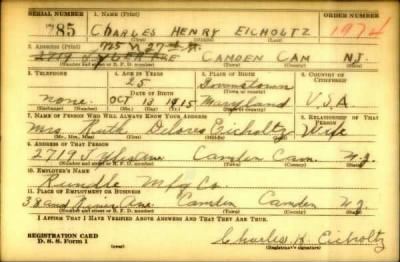 SERIAL NUMBER 1. NAME (Print) ORDER NUMBER
785 CHARLES HENRY EICHOLTZ 1974
(First) (Middle) (Last)
725 N 27th St.
2. ADDRESS (Print)
2719 CAMDEN CAM N.J.
(Number and street or R. F. D. number) (Town) (County) (State)
3. TELEPHONE 4. AGE IN YEARS 5. PLACE OF BIRTH 6. COUNTRY OF CITIZENSHIP
25
DATE OF BIRTH (Town or county)
none. OCT 13 1915 Maryland U.S.A
(Exchange) (Number) (Mo.) (Day) (Yr.) (State or country)
7. NAME OF PERSON WHO WILL ALWAYS KNOW YOUR ADDRESS 8. RELATIONSHIP OF THAT PERSON
Mrs. Ruth Delores Eicholtz Wife
(Mr., Mrs., Miss) (First) (Middle) (Last)
9. ADDRESS OF THAT PERSON
2719 Camden Cam. N.J.
(Number and street or R. F. D. number) (Town) (County) (State)
10. EMPLOYER'S NAME
Rundle Mfg Co.
11. PLACE OF EMPLOYMENT OR BUSINESS
38 and River Ave. Camden Camden N.J.
(Number and street or R. F. D. number) (Town) (County) (State)
I AFFIRM THAT I HAVE VERIFIED ABOVE ANSWERS AND THAT THEY ARE TRUE.
REGISTRATION CARD
D. S. S. Form 1 Charles H. Eicholtz
(Registrant's signature)